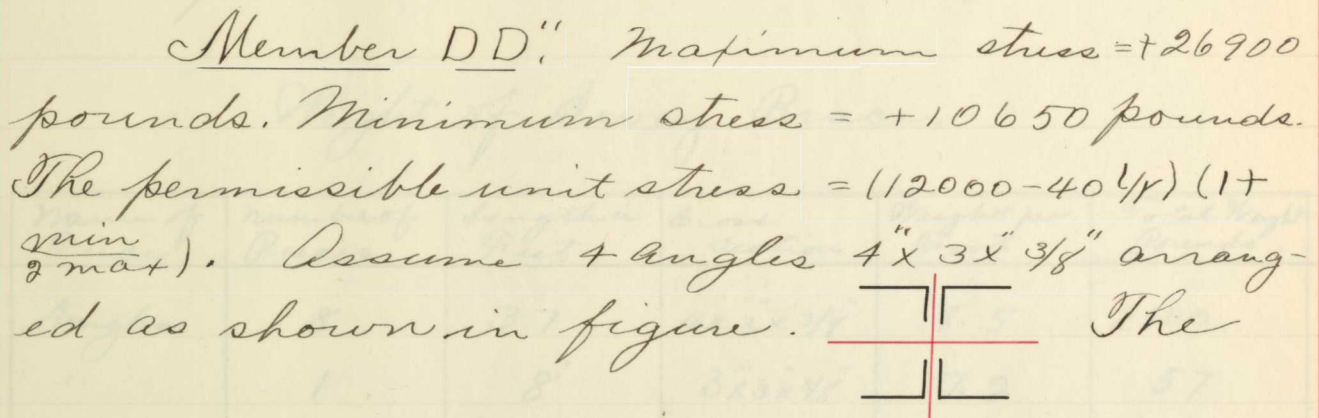 Member DD". Maximum stress = +26900
pounds. Minimum stress = +10650 pounds.
The permissible unit stress = (12000-40 l/r) (1+
min/2max). Assume 4 angles 4"x 3"x 3/8" arrang-
ed as shown in figure. The